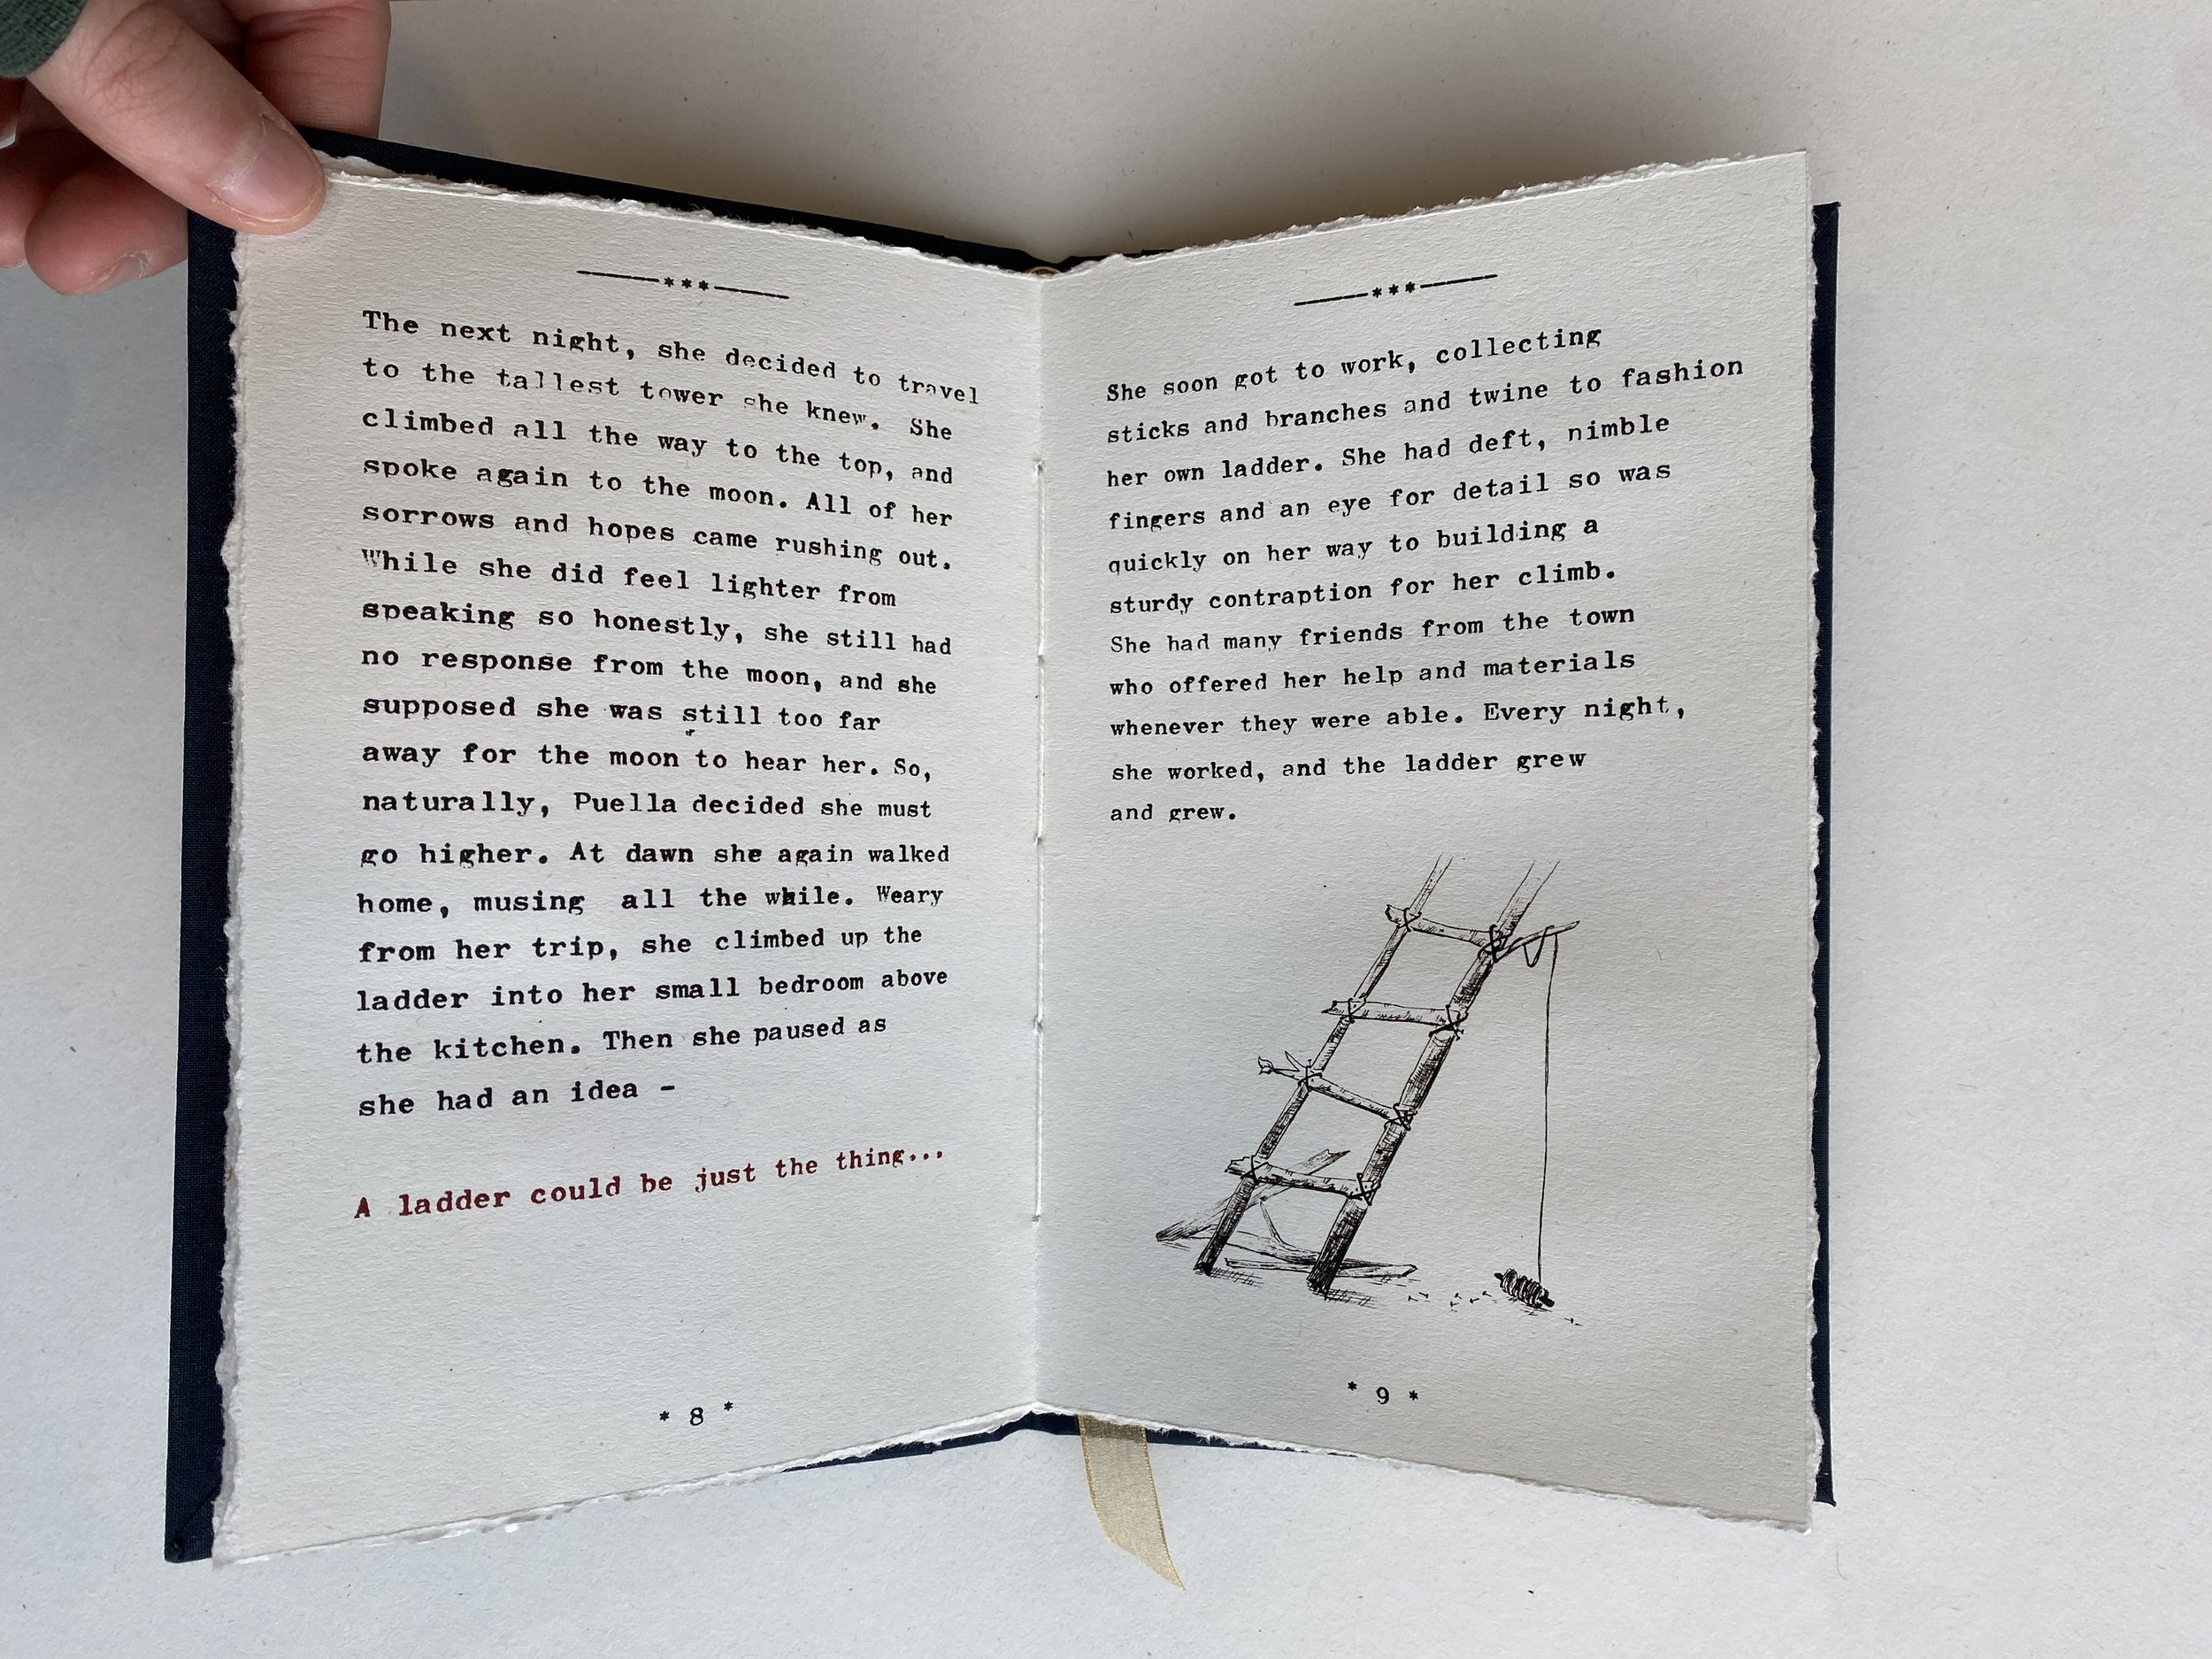 ———***———
The next night, she decided to travel
to the tallest tower she knew. She
climbed all the way to the top, and
spoke again to the moon. All of her
sorrows and hopes came rushing out.
While she did feel lighter from
speaking so honestly, she still had
no response from the moon, and she
supposed she was still too far
away for the moon to hear her. So,
naturally, Puella decided she must
go higher. At dawn she again walked
home, musing all the while. Weary
from her trip, she climbed up the
ladder into her small bedroom above
the kitchen. Then she paused as
she had an idea -
A ladder could be just the thing...
* 8 *
———***———
She soon got to work, collecting
sticks and branches and twine to fashion
her own ladder. She had deft, nimble
fingers and an eye for detail so was
quickly on her way to building a
sturdy contraption for her climb.
She had many friends from the town
who offered her help and materials
whenever they were able. Every night,
she worked, and the ladder grew
and grew.
* 9 *